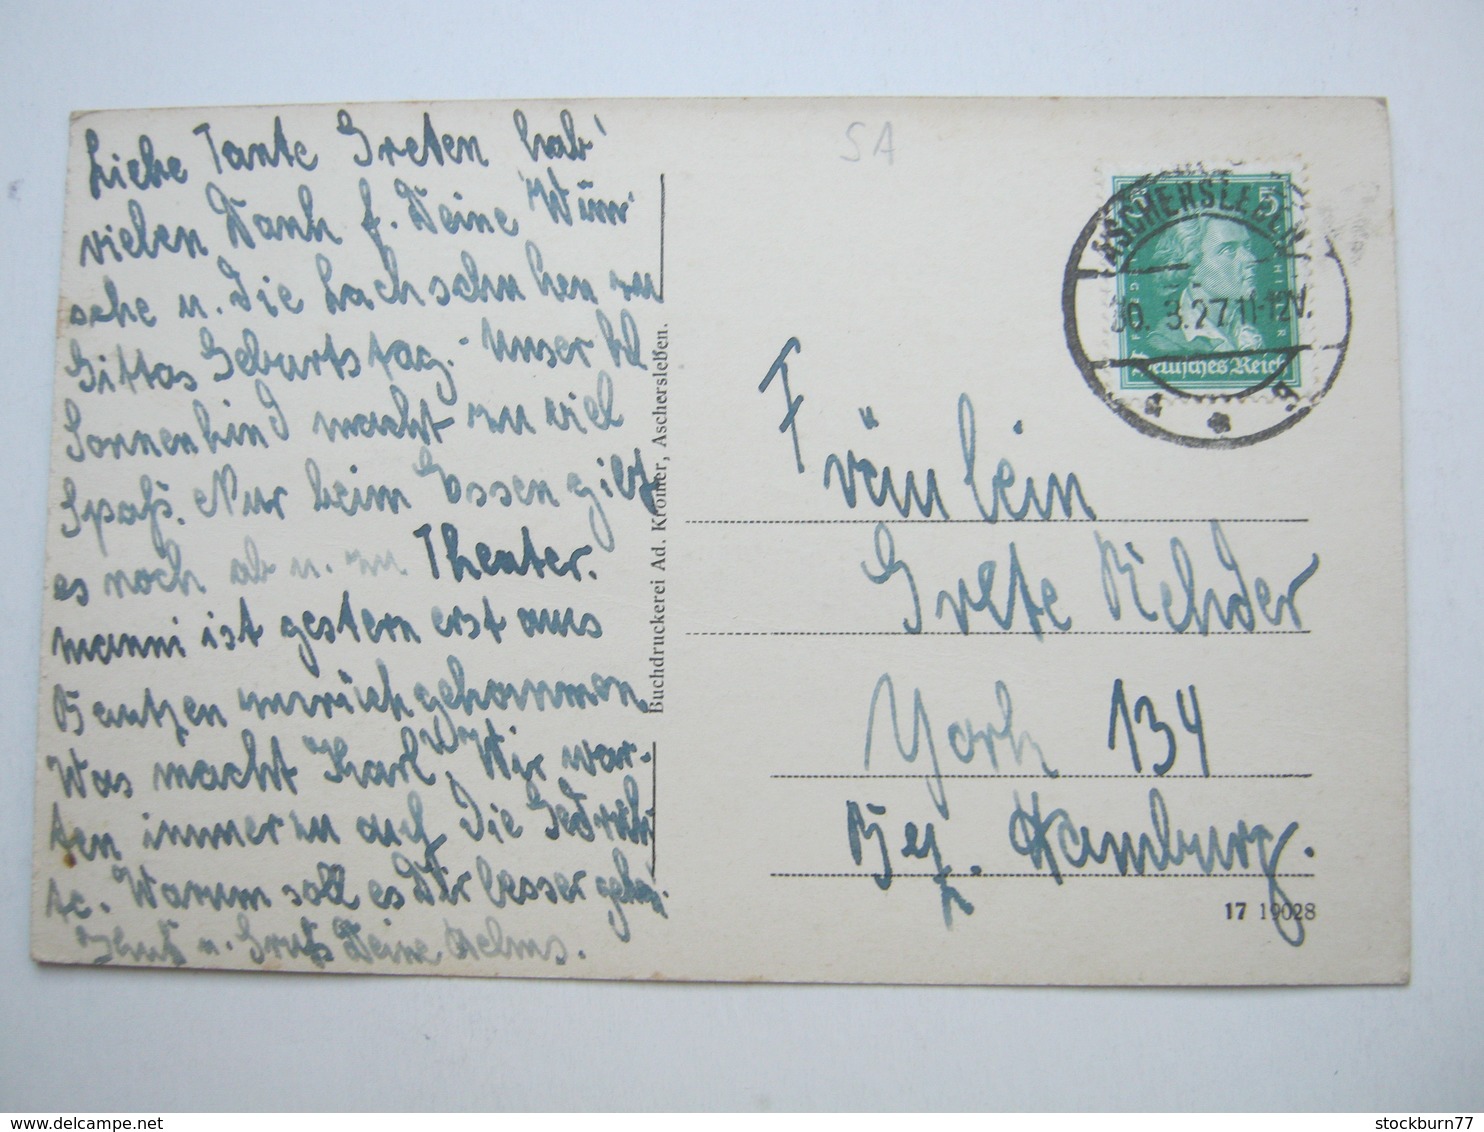 Liebe Tante Greten hab'
vielen Dank f. Deine Wün-
sche u. Die Lachschuhen zu
Gittas Geburtstag. - Unser kl
Sonnenkind macht zu viel
Spaß. Nur beim Essen gibt
es noch ab u. zu Theater.
Manni ist gestern erst aus
Bautzen zurückgekommen
Was macht Karl, Wir war-
ten immerzu auf Die Gedich-
te. Warum soll es Dir besser gehn,
u. Gruß Deine Helms.
Buchdruckerei Ad. Kromer, Aschersleben.
SA
ASCHERSLEBEN
30. 3.27.11-12V.
5
Deutsches Reich
Fräulein
Grete Rehder
York 134
Bez. Hamburg.
17 19028
stockburn77